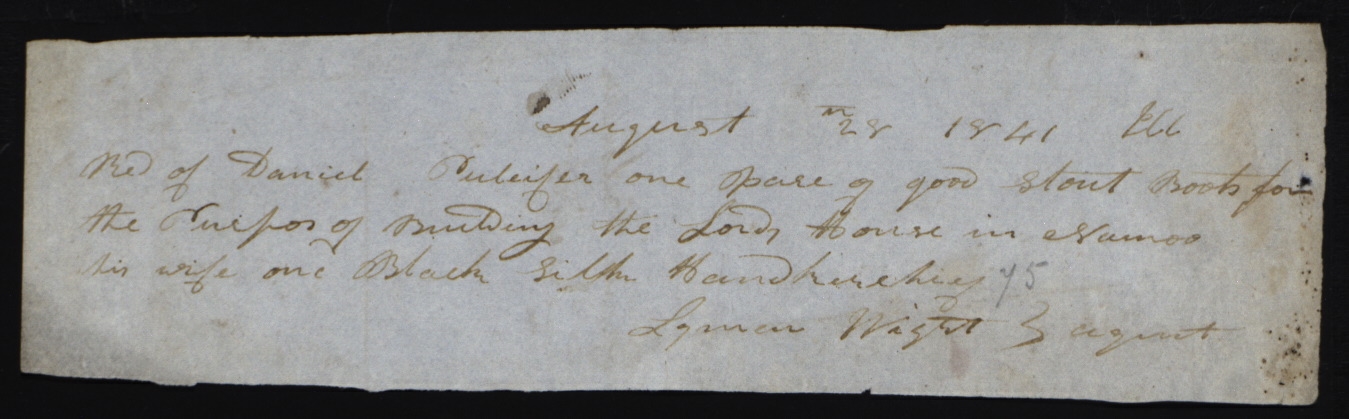 August 28 1841
Red of Daniel Pulcifer one pare of good stout Boots for
the Purpos of Building the Lords House in Nauvoo
his wife one Black Silk Handkirchief 75
Lyman Wight } agent